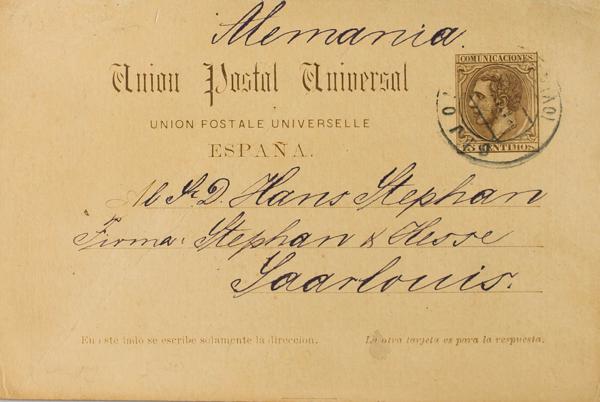 Alemania.
Union Postal Universal
UNION POSTALE UNIVERSELLE
ESPAÑA.
COMUNICACIONES
15 CENTIMOS
Al Sr. D. Hans Stephan
Firma: Stephan & Hesse
Saarlouis.
En este lado se escribe solamente la direccion.
La otra tarjeta es para la respuesta.